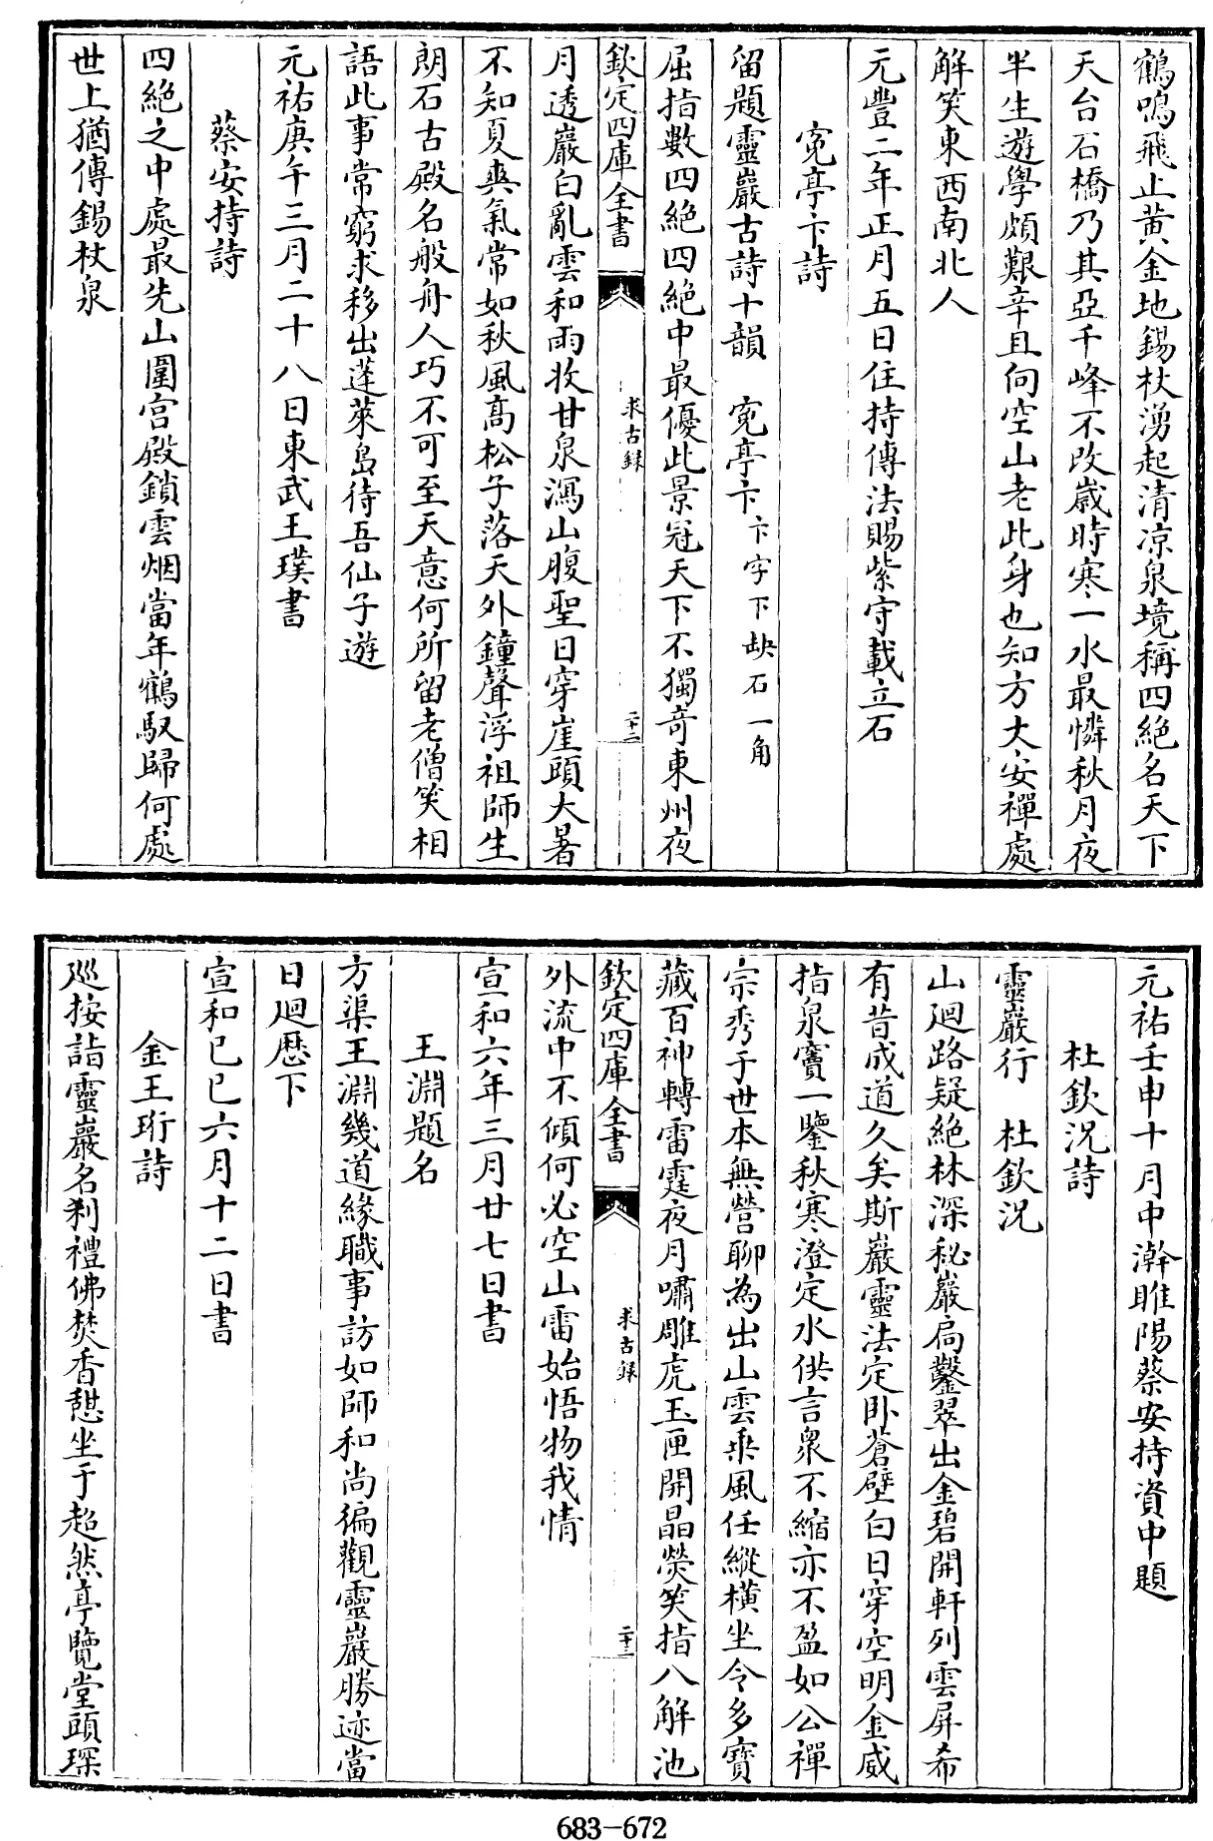 鶴鳴飛止黄金地錫杖湧起清凉泉境稱四絶名天下
天台石橋乃其亞千峰不改歲時寒一水最憐秋月夜
半生遊學頗艱辛且向空山老此身也知方丈安禪處
解笑東西南北人
元豐二年正月五日住持傳法賜紫守載立石
寃亭卞詩
留題靈巖古詩十韻　寃亭卞卞字下缺石一角
屈指數四絶四絶中最優此景冠天下不獨竒東州夜
欽定四庫全書
求古録
二十二
月透巖白亂雲和雨收甘泉瀉山腹聖日穿崖頭大暑
不知夏爽氣常如秋風髙松子落天外鐘聲浮祖師生
朗石古殿名般舟人巧不可至天意何所留老僧笑相
語此事常窮求移出蓬萊島待吾仙子遊
元祐庚午三月二十八日東武王璞書
蔡安持詩
四絶之中處最先山圍宫殿鎖雲烟當年鶴馭歸何處
世上猶傳錫杖泉
元祐壬申十月中澣睢陽蔡安持資中題
杜欽況詩
靈巖行　杜欽況
山廻路疑絶林深秘巖扃鑿翠出金碧開軒列雲屏希
有昔成道久矣斯巖靈法定卧蒼壁白日穿空明金威
指泉竇一鑒秋寒澄定水供言衆不縮亦不盈如公禪
宗秀于世本無營聊為出山雲乘風任縱横坐令多寶
藏百神轉雷霆夜月嘯雕虎玉匣開晶熒笑指八解池
欽定四庫全書
求古録
二十三
外流中不傾何必空山雷始悟物我情
宣和六年三月廿七日書
王淵題名
方渠王淵幾道緣職事訪如師和尚徧觀靈巖勝迹當
日廻歴下
宣和己巳六月十二日書
金王珩詩
廵按詣靈巖名刹禮佛焚香憇坐于超然亭覽堂頭琛
683-672